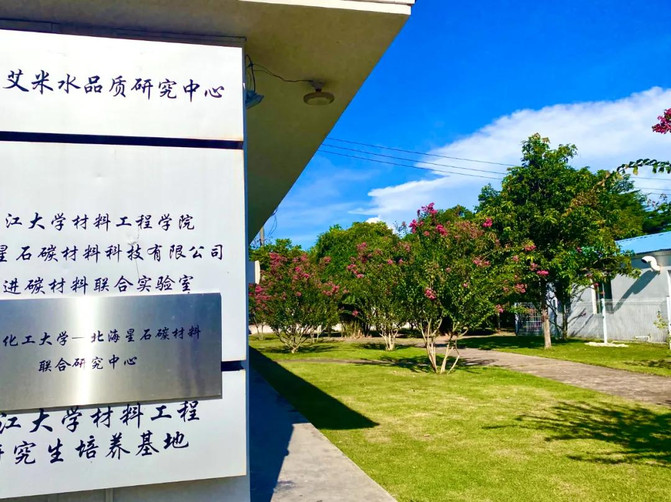 艾米水品质研究中心
江大学材料工程学院
星石碳材料科技有限公司
进碳材料联合实验室
化工大学—北海星石碳材料
联合研究中心
江大学材料工程
研究生培养基地